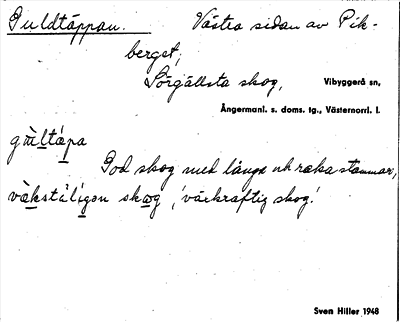 Guldtäppan. Västra sidan av Pik-
berget,
Sörgällsta skog, Vibyggerå sn,
Ångermanl. s. doms. tg., Västernorrl. l.
gùltápa
God skog med långa och raka stammar,
vàkstáligən skωg, 'växkraftig skog.'
Sven Hiller 1948